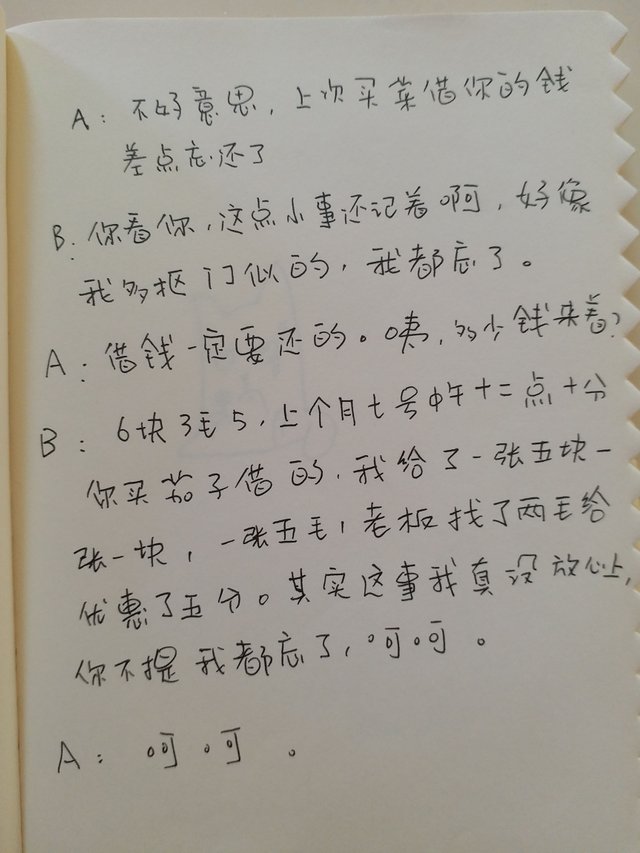 A：不好意思，上次买菜借你的钱
差点忘还了
B：你看你，这点小事还记着啊，好像
我多抠门似的，我都忘了。
A：借钱一定要还的。咦，多少钱来着？
B：6块3毛5，上个月七号中午十二点十分
你买茄子借的，我给了一张五块一
张一块，一张五毛，老板找了两毛给
优惠了五分。其实这事我真没放心上，
你不提我都忘了，呵呵。
A：呵呵。